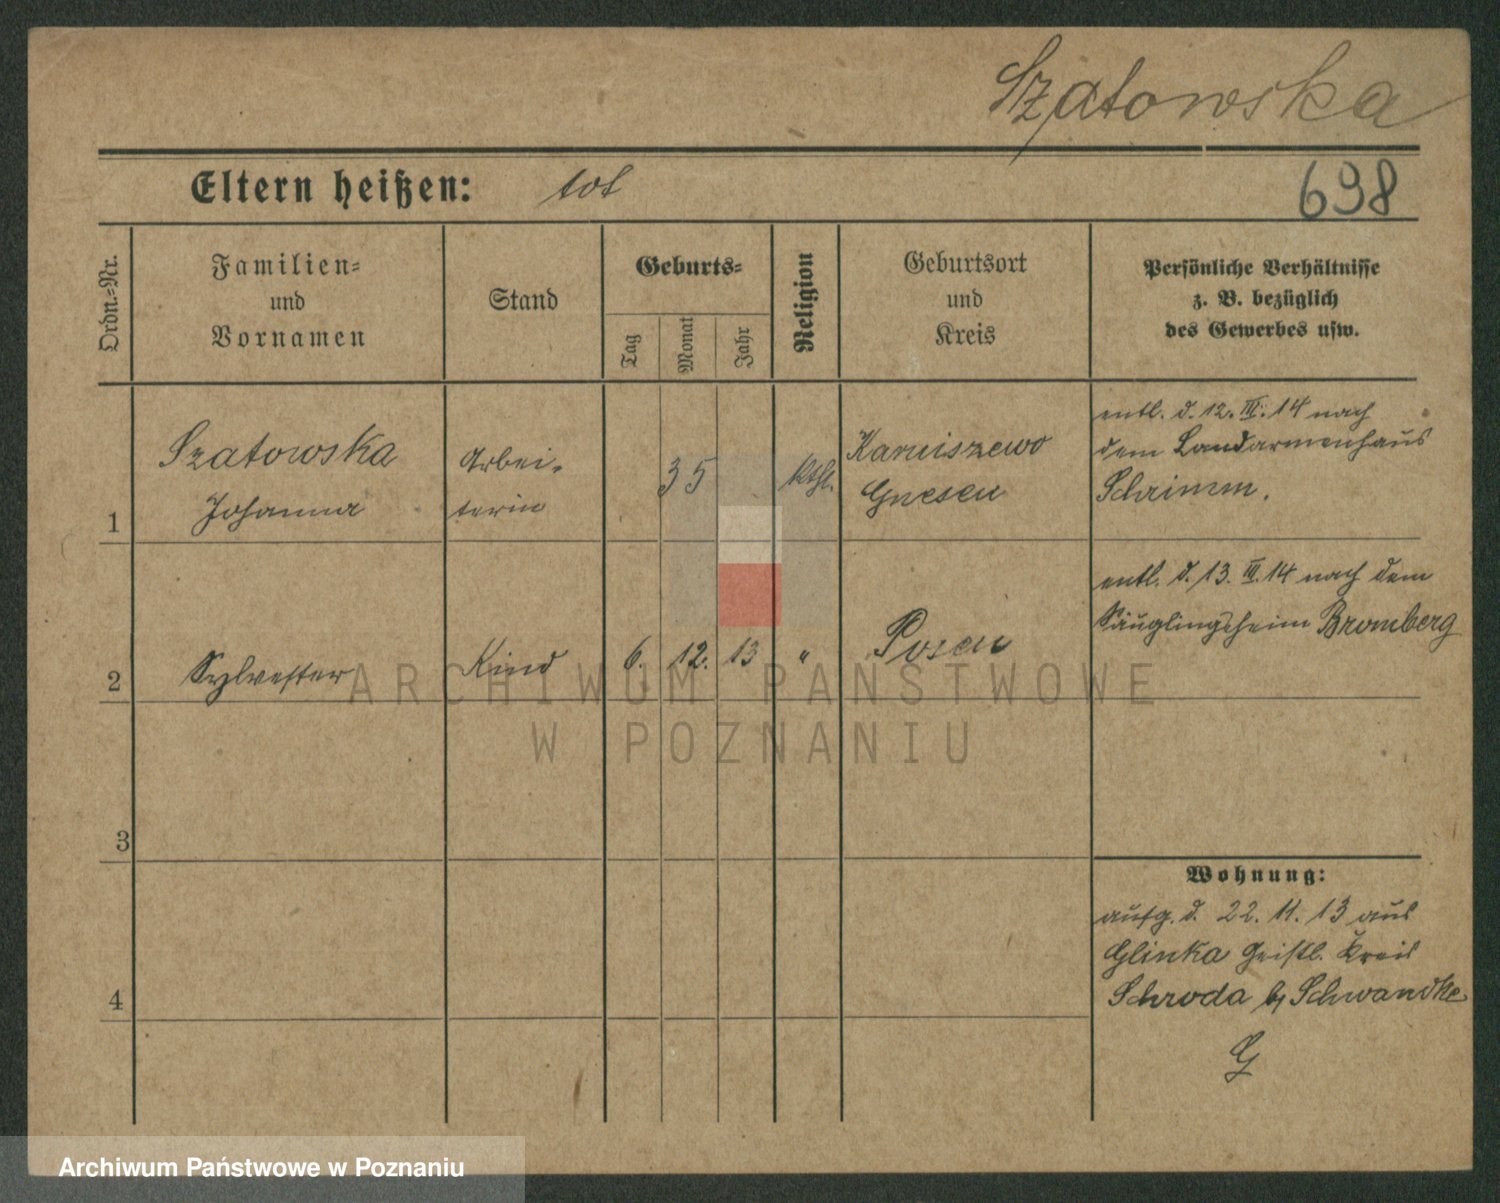 Szatowska
Eltern heißen: tot
698
Ordn.-Nr.
Familien-
und
Vornamen
Stand
Geburts-
Tag
Monat
Jahr
Religion
Geburtsort
und
Kreis
Persönliche Verhältnisse
z. B. bezüglich
des Gewerbes usw.
1
Szatowska
Johanna
Arbei-
terin
35
kthl.
Karniszewo
Gnesen
entl. d. 12. III. 14 nach
dem Landarmenhaus
Schrimm.
2
Sylvester
Kind
6. 12. 13
"
Posen
entl. d. 13. III. 14 nach dem
Säuglingsheim Bromberg
3
4
Wohnung:
aufg. d. 22. 11. 13 aus
Glinka Geistl. Kreis
Schroda b/ Schwandke
G
ARCHIWUM PAŃSTWOWE
W POZNANIU
Archiwum Państwowe w Poznaniu